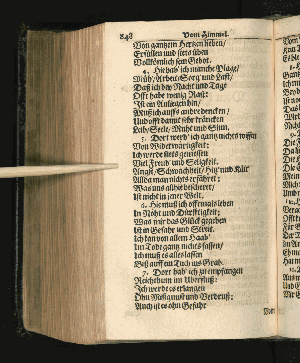 248 Vom Himmel.
Von gantzem Hertzen lieben/
Erfüllen und stets üben
Vollkömlich sein Gebot.
4. Hie hab' ich manche Plage/
Müh/ Arbeit/ Sorg' und Last/
Daß ich bey Nacht und Tage
Offt habe wenig Rast:
Ist ein Anliegen hin/
Muß ich auffs andre dencken/
Und offt damit sehr kräncken
Leib/ Seele/ Muht und Sinn.
5. Dort werd' ich gantz nichts wissen
Von Widerwertigkeit;
Ich werde stets geniessen
Viel Freud' und Seligkeit.
Angst/ Schwachheit/ Hitz' und Kält'
Allda man nichts erfähret;
Was uns allhie beschweret/
Ist nicht in jener Welt.
6. Hie muß ich offtmals leben
In Noht und Dürfftigkeit;
Was mir das Glück gegeben
Ist in Gefahr und Streit.
Ich kan von allem Haab'
Im Tode gantz nichts fassen/
Ich muß es alles lassen
Biß auff ein Tuch ins Grab.
7. Dort hab' ich zu empfangen
Reichthum im Uberfluß:
Ich werde es erlangen
Ohn Mißgunst und Verdruß;
Auch ist es ohn Gefahr
Von